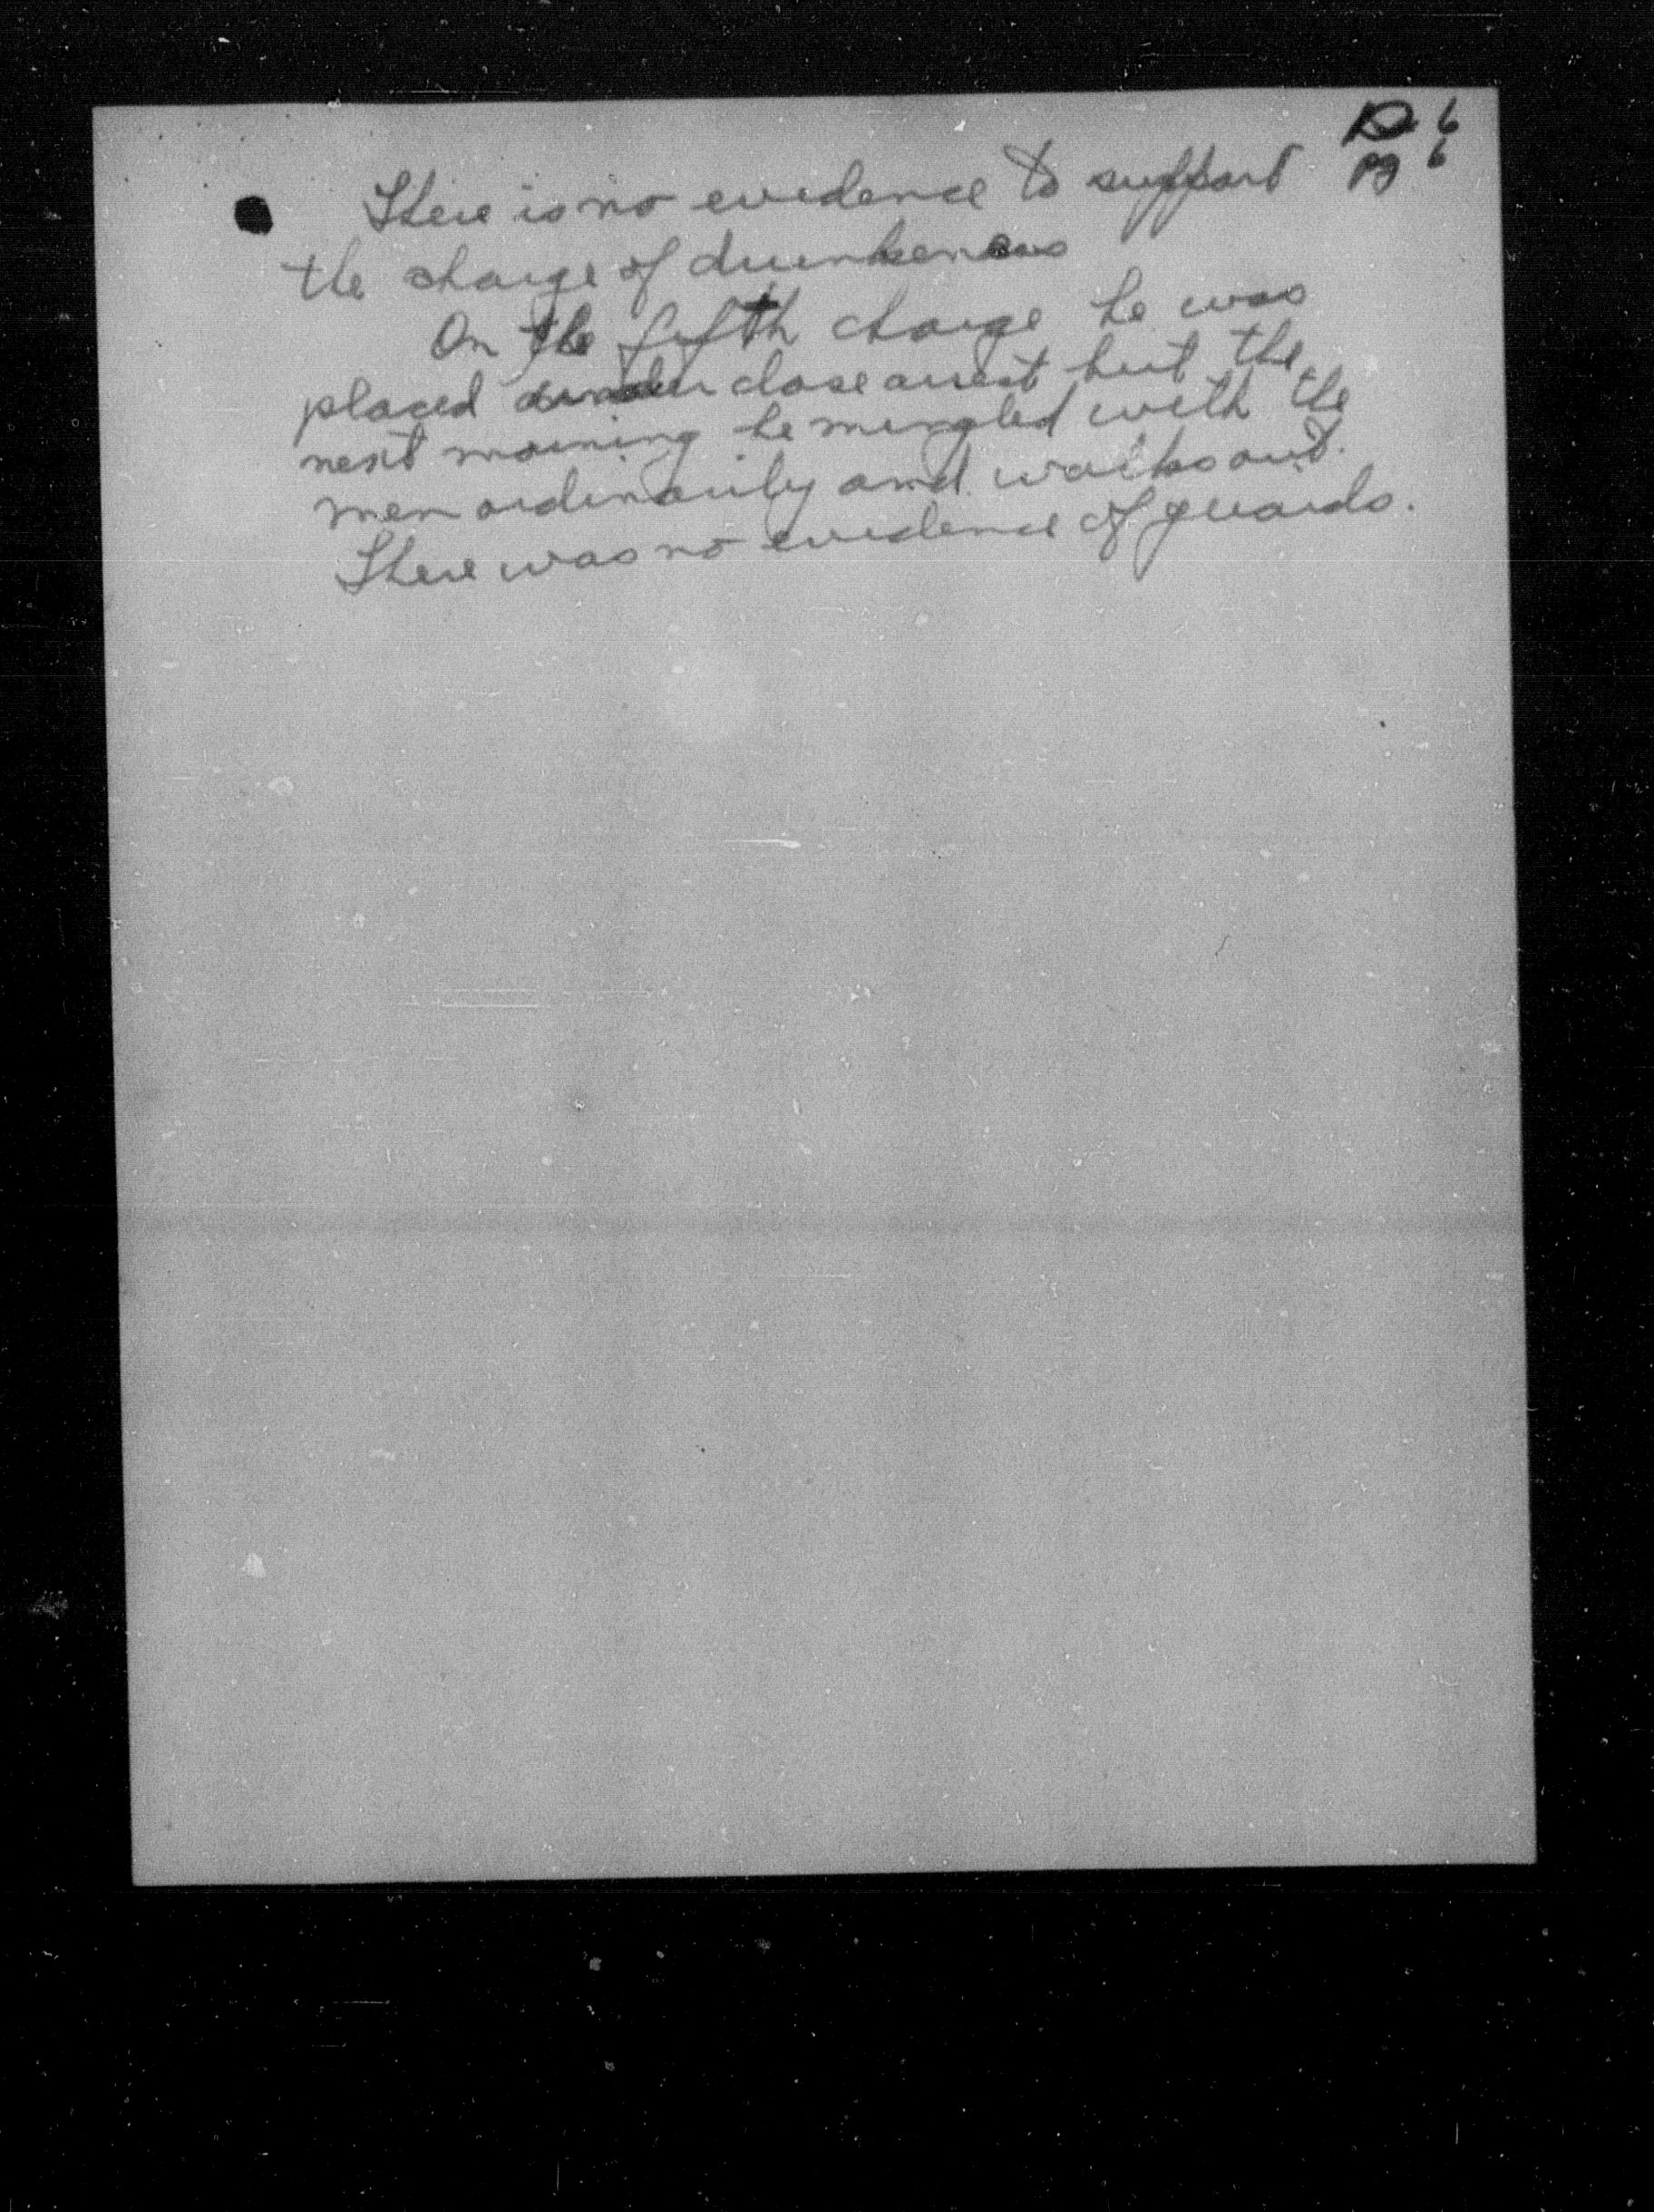 6
pg 6
There is no evidence to support
the charge of drunkeness
On the fifth charge he was
placed under close arrest but the
next morning he mingled with the
men ordinarily and walks out.
There was no evidence of guards.